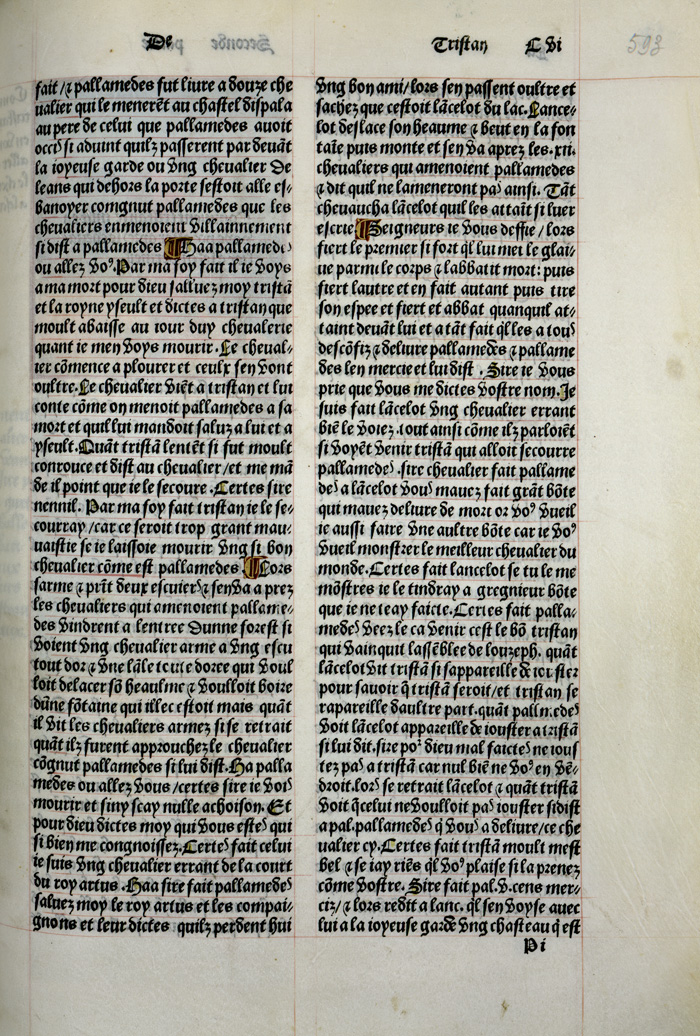 De
Tristan C vi
593
fait/⁊ pallamedes fut liure a douze che
ualier qui le menerẽt au chastel dispala
au pere de celui que pallamedes auoit
occiꝰ si aduint quilz passerent par deuãt
la ioyeuse garde ou vng chevalier De
leans qui dehors la porte sestoit alle es-
banoyer congnut pallamedes que les
chevaliers enmenoient villainnement
si dist a pallamedes Haa pallamedes
ou allez voꝰ. Par ma foy fait il ie voys
a ma mort pour dieu salluez moy tristã
et la royne yseult et dictes a tristan que
moult abaisse au iour duy chevalerie
quant ie men voys mourir. Le cheual-
ier cõmence a plourer et ceulx sen vont
oultre. Le chevalier viẽt a tristan et lui
conte cõme on menoit pallamedes a sa
mort et quil lui mandoit saluz a lui et a
yseult. Quãt tristã lentẽt si fut moult
conrouce et dist au chevalier/et me mã
de il point que ie le secoure. Certes sire
nennil. Par ma foy fait tristan ie le se-
courray/car ce seroit trop grant mau-
uaistie se ie laissoie mourir vng si bon
chevalier cõme est pallamedes Lors
sarme ⁊ prãt deux escuiers ⁊ sen va a prez
les chevaliers qui amenoient pallame-
des vindrent a lentree Dunne forest si
voient vng chevalier arme a vng escu
tout dor ⁊ vne lãse toute doree qui voul
loit delacer sõ heaulme ⁊ voulloit boire
dũne fõtaine qui illec estoit mais quãt
il vit les chevaliers armez si se retrait
quãt ilz furent approuchez le chevalier
cõgnut pallamedes si lui dist. Ha palla
medes ou allez vous/certes sire ie vois
mourir et si ny scay nulle achoison. Et
pour dieu dictes moy qui vous estes qui
si bien me congnoissez. Certes fait celui
ie suis vng chevalier errant de la court
du roy artus. Haa sire fait pallamedes
saluez moy le roy artus et les compai-
gnons et leur dictes quilz perdent hui
vng bon ami/lors sen passent oultre et
sachez que cestoit lãcelot du lac. Lance-
lot deslace son heaume ⁊ beut en la fon
taĩe puis monte et sen va aprez les.xii.
chevaliers qui amenoient pallamedes
⁊ dit quil ne lameneront pas ainsi. Tãt
cheuaucha lãcelot quil les attaĩt si luer
escrie Seigneurs ie vous deffie/lors
fiert le premier si fort q̃l lui met le glai-
ue parmi le corps ⁊ labbatit mort: puis
fiert lautre et en fait autant puis tire
son espee et fiert et abbat quanquil at-
taint deuãt lui et a tãt fait q̃l les a tous
descõfiz ⁊ deliure pallamedes ⁊ pallame
des len mercie et lui dist. Sire ie vous
prie que vous me dictes vostre nom. Je
suis fait lãcelot vng chevalier errant
biẽ le voiez. tout ainsi cõme ilz parloiẽt
si voyẽt venir tristã qui alloit secourre
pallamedes. sire chevalier fait pallame
des a lãcelot vous mauez fait grãt bõte
qui mauez deliure de mort or voꝰ vueil
ie aussi faire vne aultre bõte car ie voꝰ
vueil monstrer le meilleur chevalier du
monde. Certes fait lancelot se tu le me
mõstres ie le tindray a gregnieur bõte
que ie ne teay faicte. Certes fait palla-
medes veez le ca venir cest le bõ tristan
qui vainquit lassẽblee de louzeph. quãt
lãcelot vit tristã si sappareille de iouster
pour sauoir q̃ tristã seroit/et tristan se
rapareille daultre part. quãt pallmedes
voit lãcelot appareille de iouster a tristã
si lui dit. sire poʳ dieu mal faictes ne ious
tez pas a tristã car nul biẽ ne voꝰ en vẽ-
droit. lors se retrait lãcelot ⁊ quãt tristã
voit q̃ celui ne voulloit pas iouster si dist
a pal. pallamedes q̃ voꝰ a deliure/ce che
ualier cy. Certes fait tristã moult mest
bel ⁊ se iay riẽs q̃l voꝰ plaise si la prenez
cõme vostre. Sire fait pal. v. cens mer-
ciz/⁊ lors redit a lanc. q̃l sen voyse auec
lui a la ioyeuse garde vng chasteau q̃ est
Pi